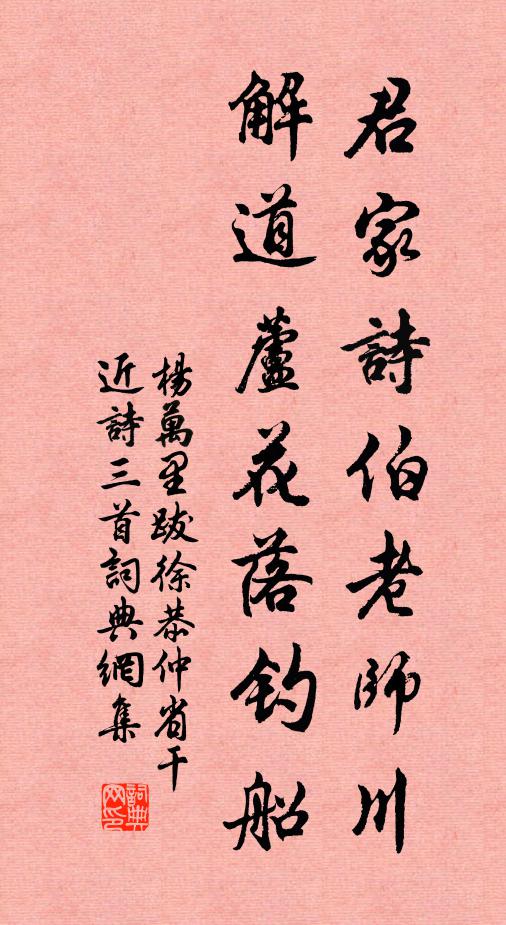 君家詩伯老師川
解道蘆花落釣船
楊萬里跋徐恭仲省干
近詩三首詞典網集
詞典網印